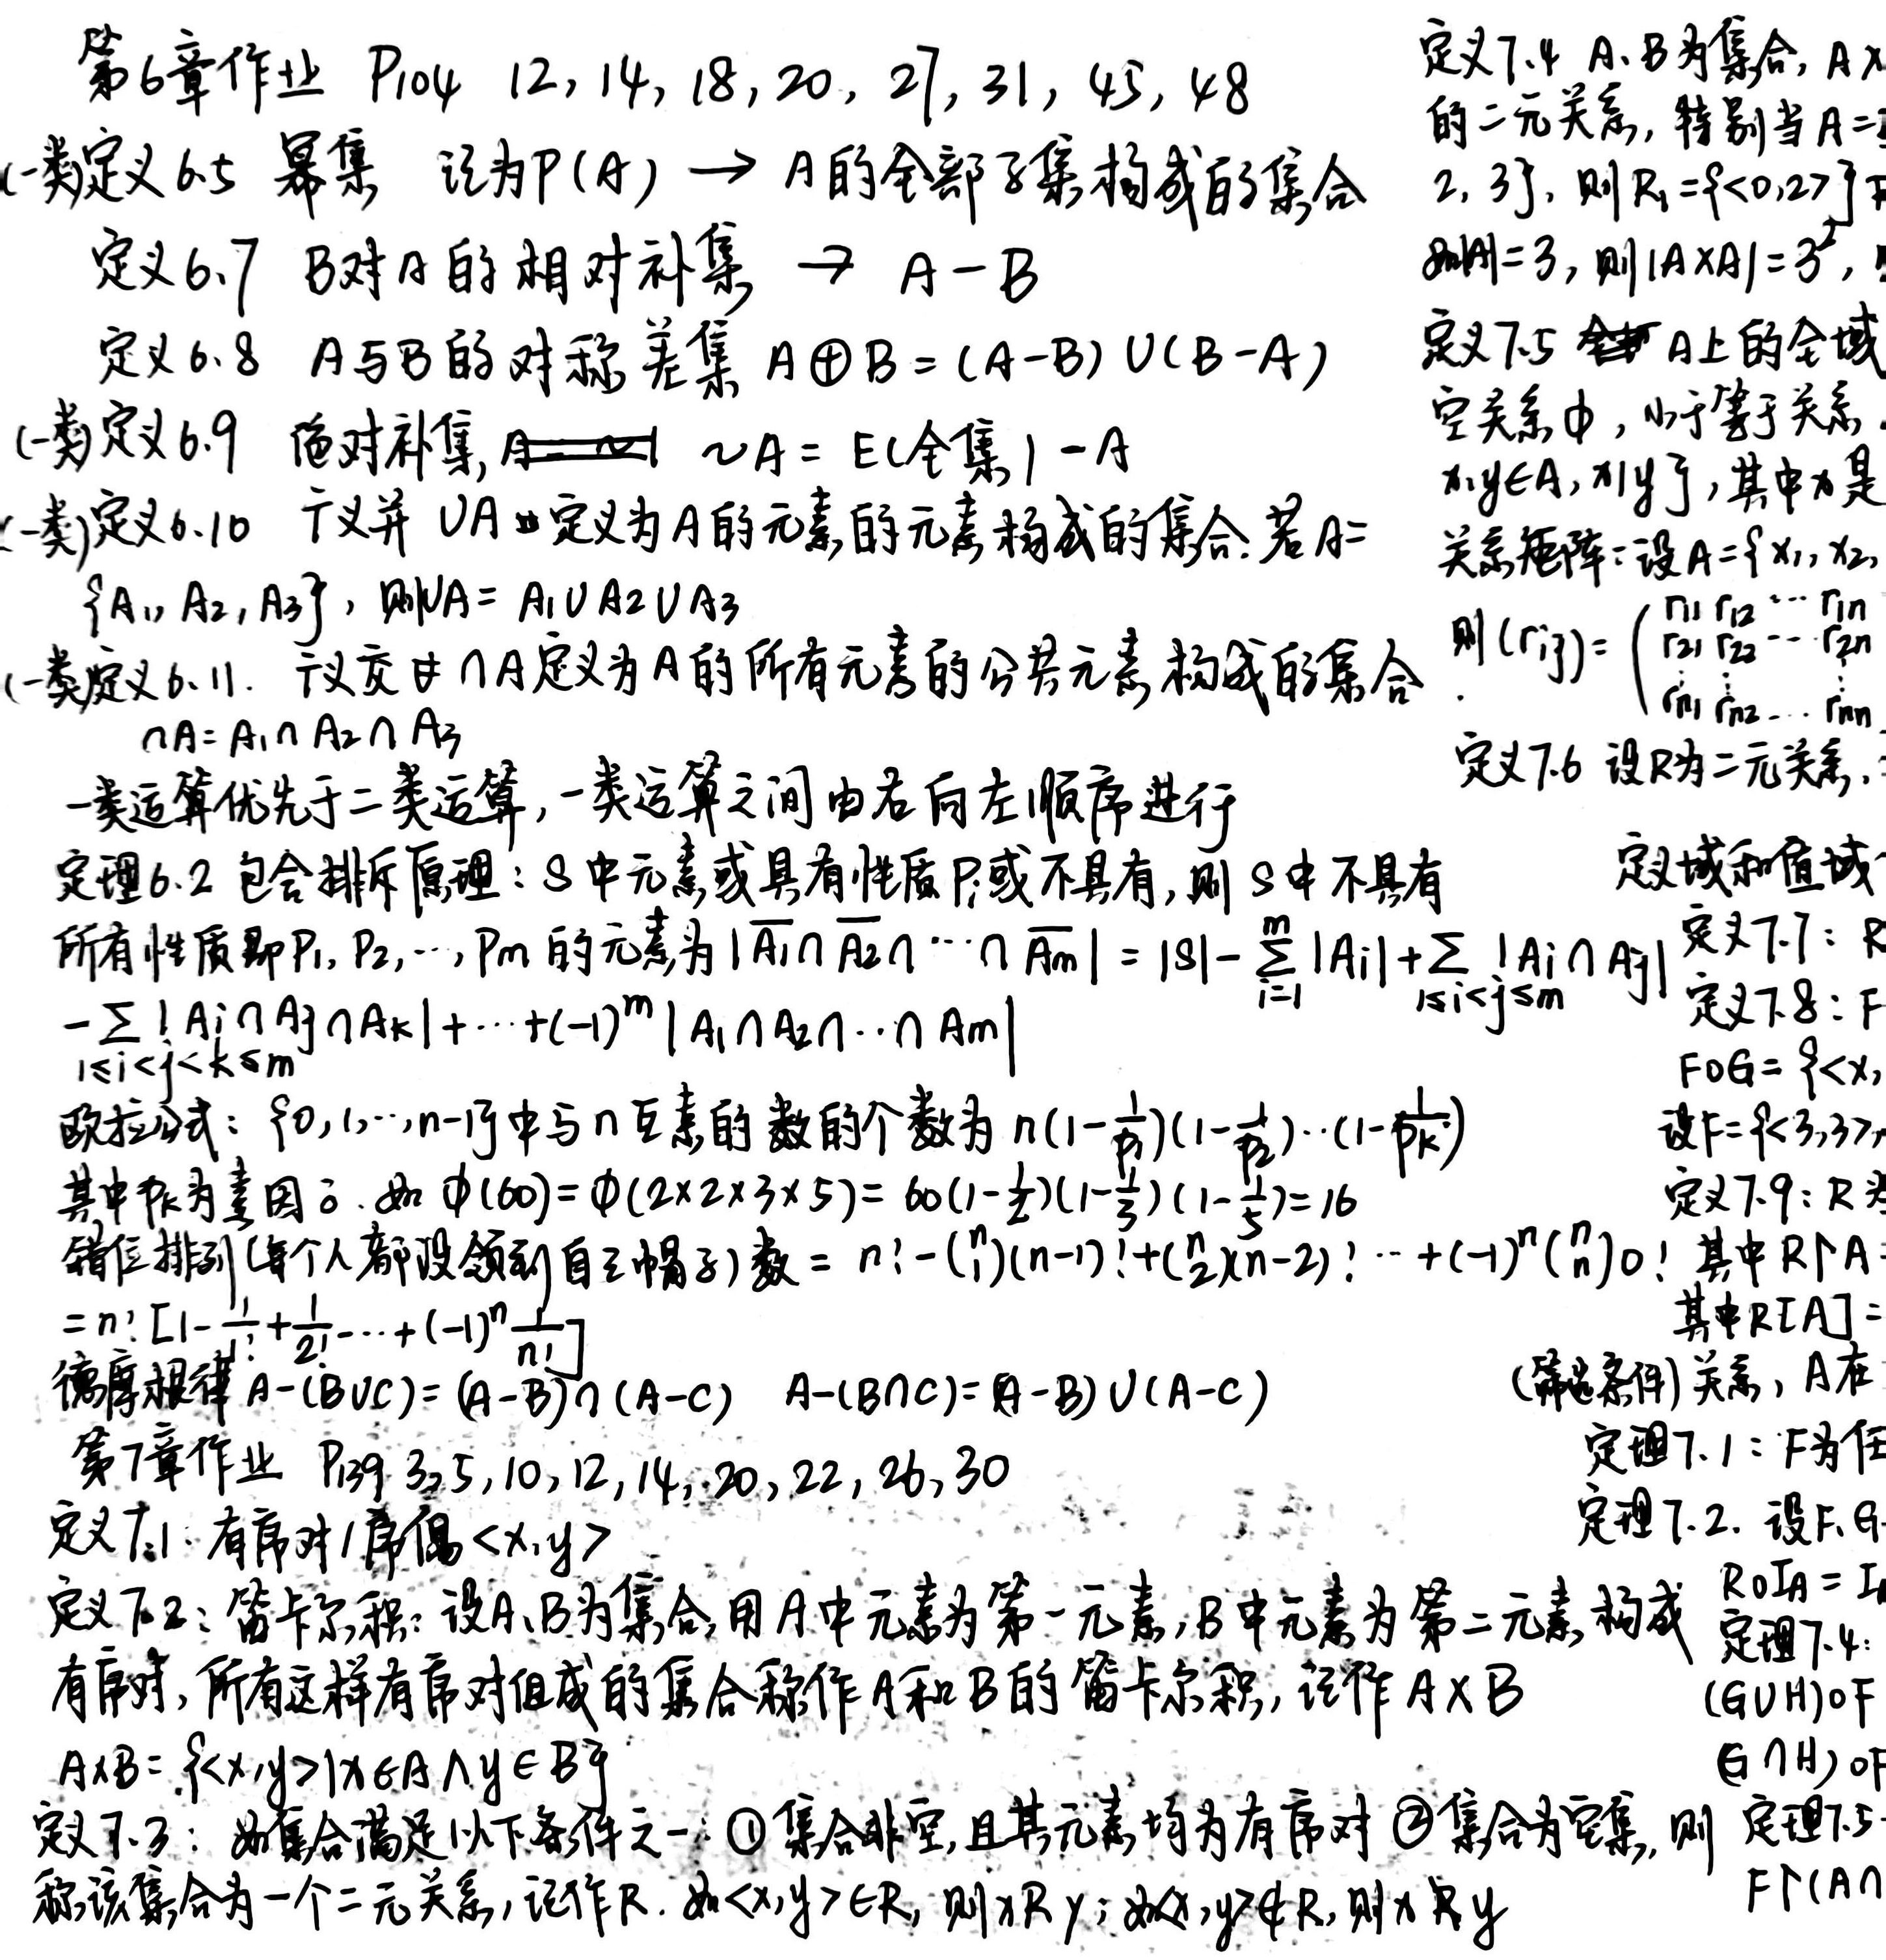 第6章作业 P104 12, 14, 18, 20, 27, 31, 45, 48
(一类)定义6.5 幂集 记为P(A) → A的全部子集构成的集合
定义6.7 B对A的相对补集 → A-B
定义6.8 A与B的对称差集 A⊕B=(A-B)∪(B-A)
(一类)定义6.9 绝对补集, ~A=E(全集)-A
(一类)定义6.10 广义并 ∪A 定义为A的元素的元素构成的集合.若A=
{A1, A2, A3}, 则∪A=A1∪A2∪A3
(一类)定义6.11. 广义交 ∩A定义为A的所有元素的公共元素构成的集合
∩A=A1∩A2∩A3
一类运算优先于二类运算,一类运算之间由右向左顺序进行
定理6.2 包含排斥原理: S中元素或具有性质Pi或不具有,则S中不具有
所有性质即P1, P2,…, Pm的元素为|A̅1∩A̅2∩…∩A̅m|=|S|-∑(i=1→m)|Ai|+∑(1≤i<j≤m)|Ai∩Aj|
-∑(1≤i<j<k≤m)|Ai∩Aj∩Ak|+…+(-1)^m|A1∩A2∩…∩Am|
欧拉公式: {0,1,…,n-1}中与n互素的数的个数为 n(1-1/p1)(1-1/p2)…(1-1/pk)
其中pk为素因子.如 φ(60)=φ(2×2×3×5)=60(1-1/2)(1-1/3)(1-1/5)=16
错位排列(每个人都没领到自己帽子)数=n!-(n 1)(n-1)!+(n 2)(n-2)!…+(-1)^n(n n)0!
=n![1-1/1!+1/2!-…+(-1)^n 1/n!]
德摩根律 A-(B∪C)=(A-B)∩(A-C) A-(B∩C)=(A-B)∪(A-C)
第7章作业 P139 3,5,10,12,14,20,22,26,30
定义7.1.有序对/序偶<x,y>
定义7.2:笛卡尔积:设A、B为集合,用A中元素为第一元素,B中元素为第二元素,构成
有序对,所有这样有序对组成的集合称作A和B的笛卡尔积,记作A×B
A×B={<x,y>|x∈A∧y∈B}
定义7.3: 如集合满足以下条件之一:①集合非空,且其元素均为有序对 ②集合为空集,则
称该集合为一个二元关系,记作R.如<x,y>∈R,则xRy;如<x,y>∉R,则xR̸y
定义7.4 A、B为集合, A×
的二元关系, 特别当A=
2, 3}, 则R1={<0,2>}
如|A|=3, 则|A×A|=3²,
定义7.5 A上的全域
空关系φ, 小于等于关系
x,y∈A, x|y}, 其中x是
关系矩阵:设A={x1, x2,
则(rij)=(r11 r12 … r1n
r21 r22 … r2n
⋮ ⋮ ⋮
rn1 rn2 … rnn
定义7.6 设R为二元关系,
定义域和值域
定义7.7: R
定义7.8: F
FoG={<x,
设F={<3,3>,
定义7.9: R为
其中R↾A=
其中R[A]=
(筛选条件)关系, A在
定理7.1: F为任
定理7.2. 设F、G
RoIA=I
定理7.4:
(G∪H)oF
(G∩H)oF
定理7.5
F↾(A∩